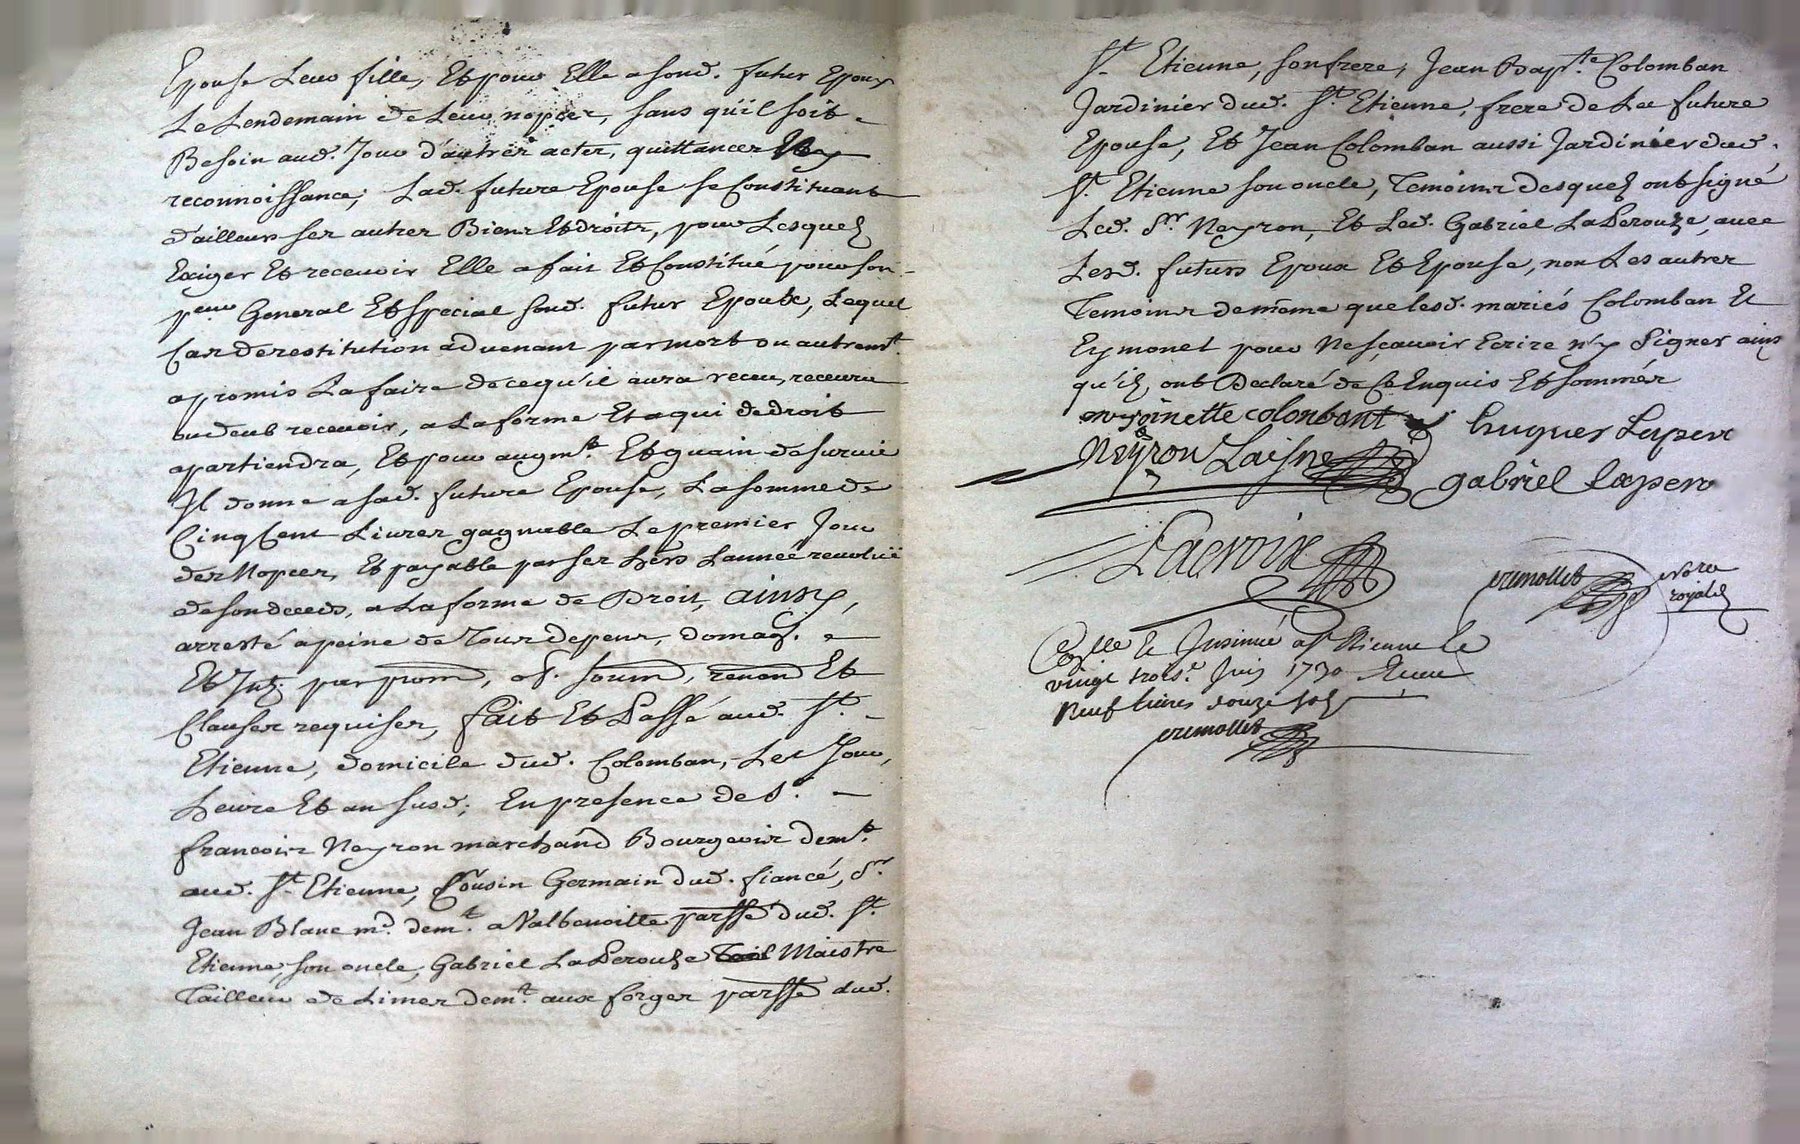 Epouse Leur fille, Et pour Elle a sond. futur Epoux
Le Lendemain de Leurs nopces, sans qu'il soit
Besoin aud. Jour d'autres actes, quittances Ny
reconnoissance; Lad. future Epouse se Constituant
d'ailleurs ses autres Biens Et droits, pour Lesquels
Exiger Et recevoir Elle a fait Et Constitué pour son
pcur General Et special sond. futur Epoux, Lequel
Cas de restitution advenant par mort ou autremt.
a promis La faire de ce qu'il aura receu, recevra
ou deub recevoir, a La forme Et a qui de droit
apartiendra, Et pour augmt. Et guain de survie
Il donne a sad. future Epouse, La somme de
Cinq Cent Livres gagnable Le premier Jour
des Nopces, Et payable par ses hers L'année revolüe
de son deceds, a La forme de Droit, ainsy,
arresté a peine de Tous depens, domag.
Et Int. par prom, o. soum, renon Et
Clauses requises, fait Et Passé aud. St.
Etienne, domicile dud. Colomban, Les Jour,
heure Et an susd; En presence de Sr.
francois Neyron marchand Bourgeois demt.
aud. St. Etienne, Cousin Germain dud. fiancé, Sr.
Jean Blanc md. demt. a Valbenoitte parsse dud. St.
Etienne, son oncle, Gabriel La Perouze Maistre
Tailleur de Limes demt. aux forges parsse dud.
St. Etienne, son frere, Jean Bapte. Colomban
Jardinier dud. St. Etienne, frere de La future
Epouse, Et Jean Colomban aussi Jardinier dud.
St. Etienne son oncle, Temoins desquels ont signé
Led. Sr. Neyron, Et Led. Gabriel La Perouze, avec
Lesd. futurs Epoux Et Epouse, non Les autres
Temoins de même que lesd. mariés Colomban Et
Eymonet pour Ne sçavoir Ecrire n'y Signer ains
qu'ils ont Declaré de Ce Enquis Et sommés
colonbant hugues Laperr
Neyron Laisne gabriel laperr
Lacroix
cremollet nore royal
Conlle & Insinué a St Etienne le
vingt trois.e Juin 1730 Receu
Neuf livres douze sols
cremollet